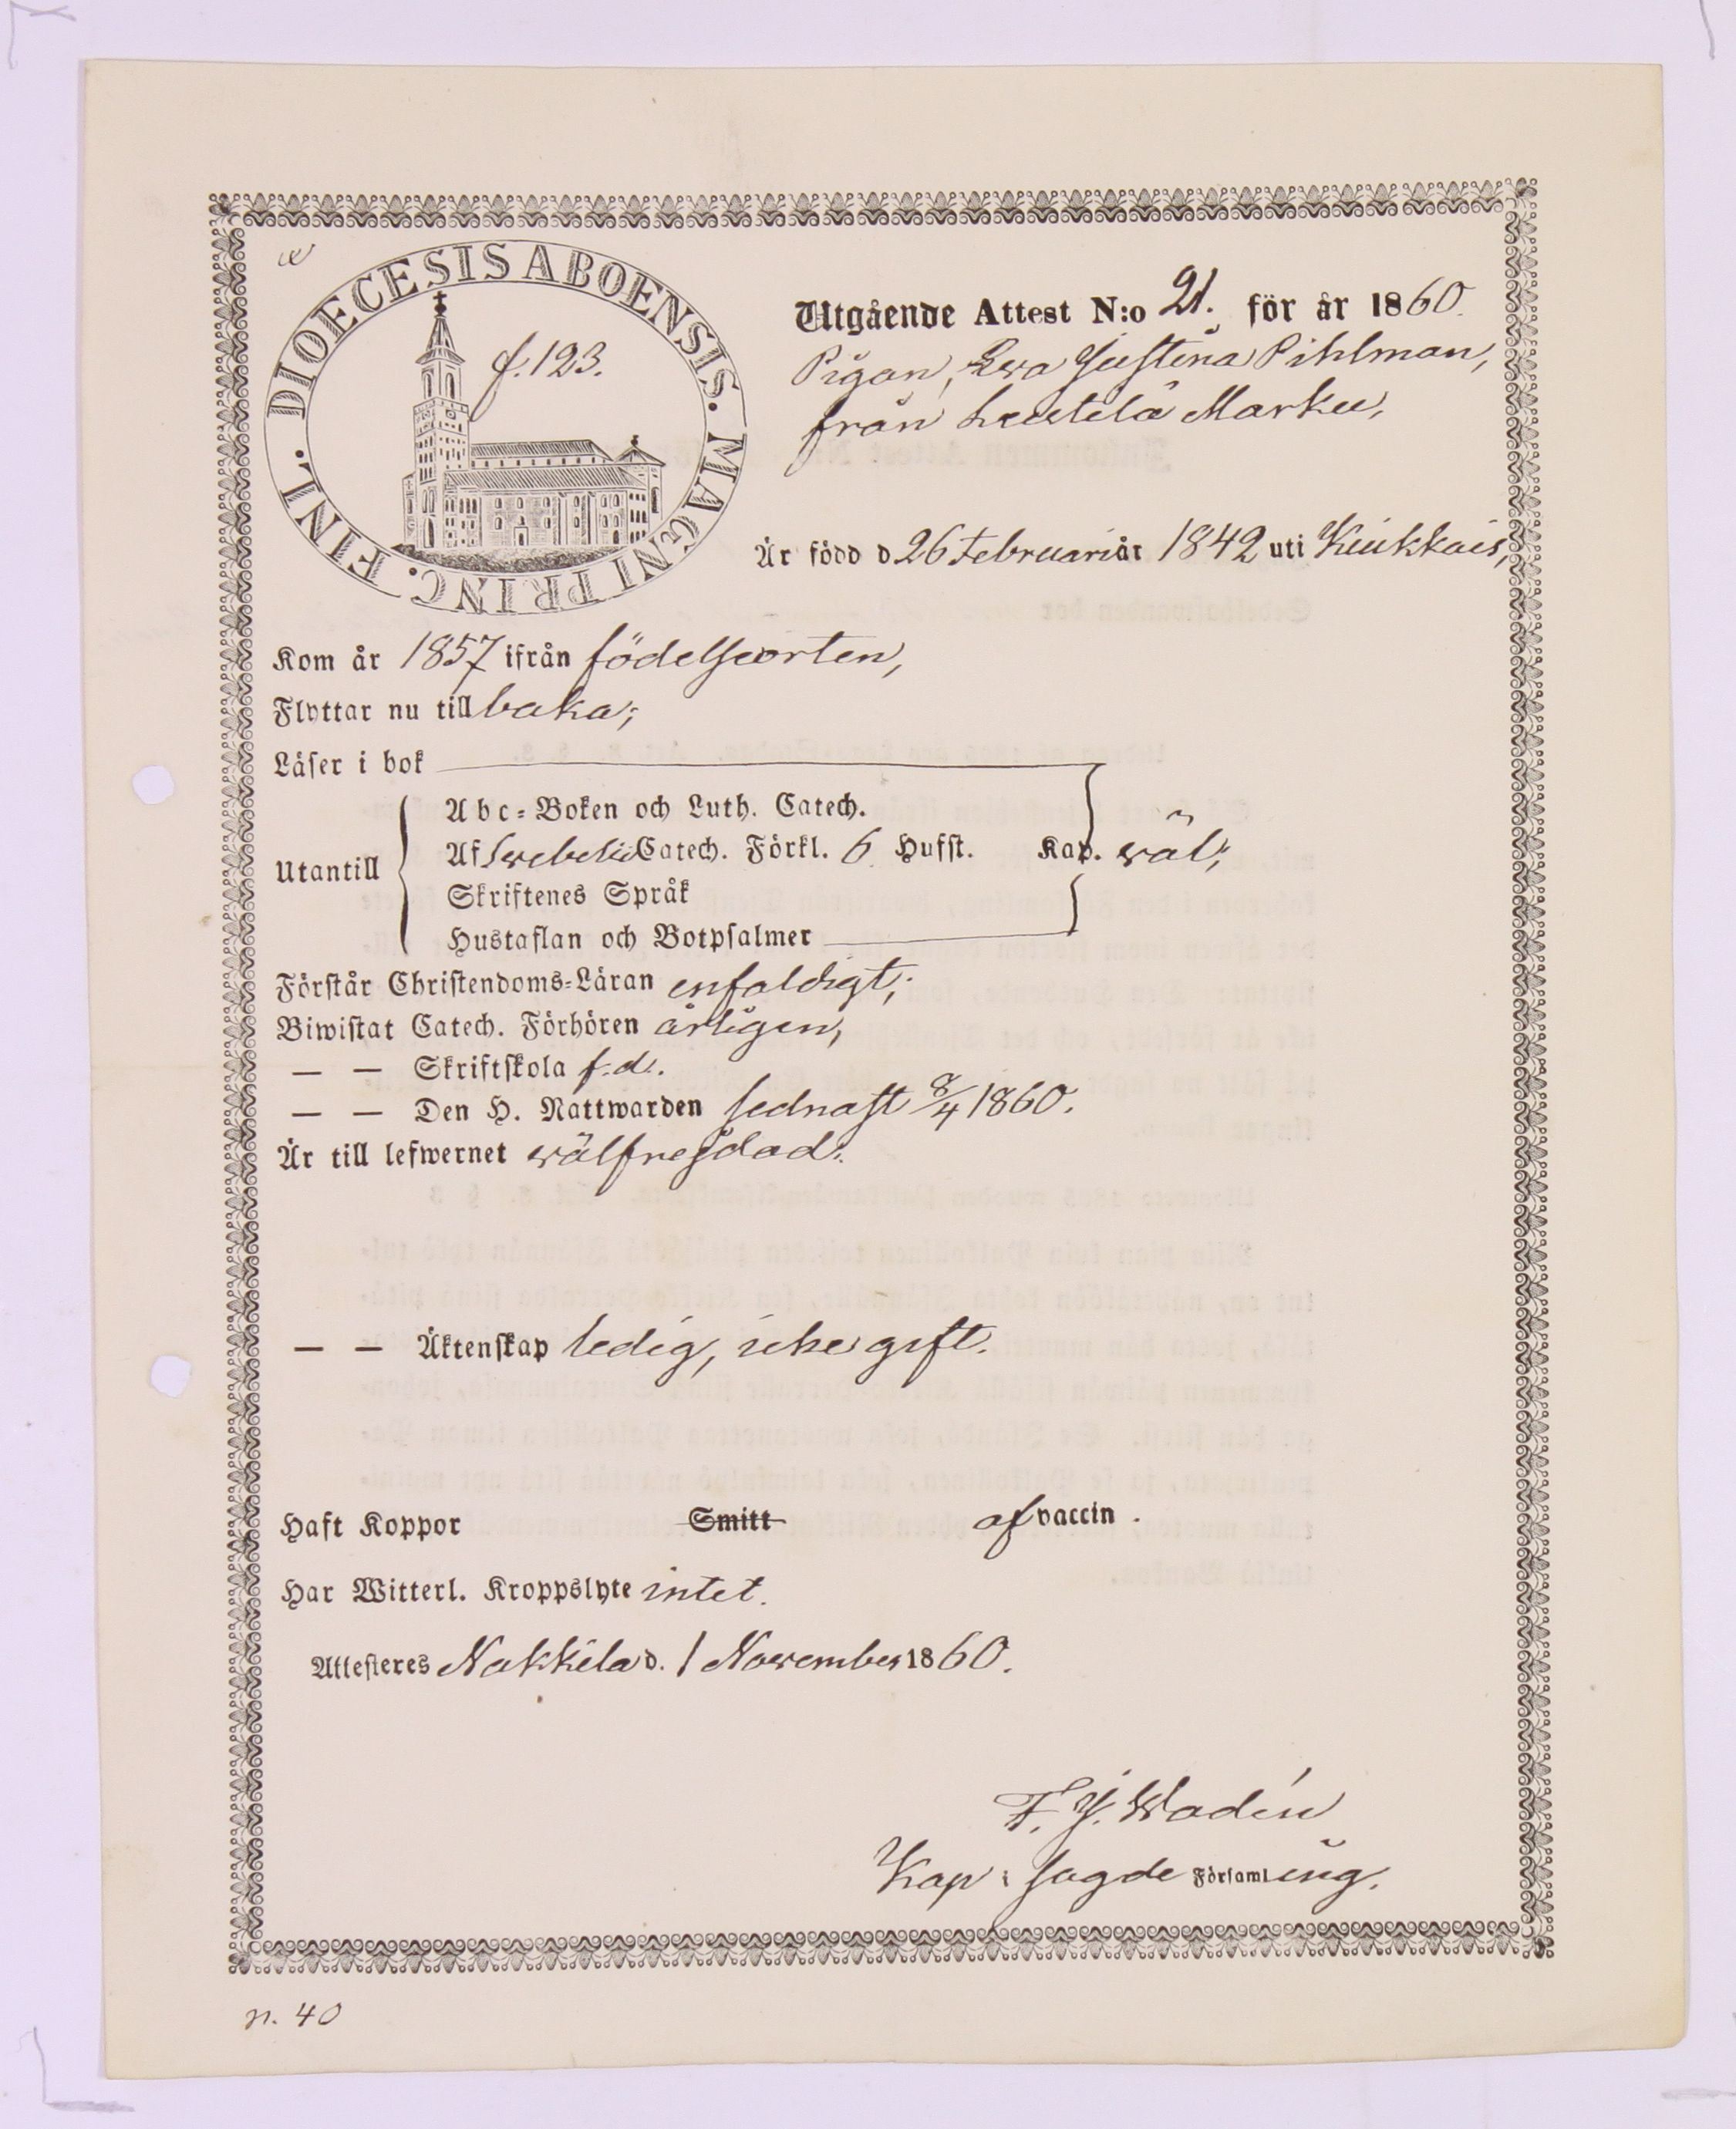 DIOECESIS ABOENSIS. MAGNI PRINC. FINL.
f. 123.
Utgående Attest N:o 21. för år 1860.
Pigan, Eva Justina Pihlman,
från Leistilä Marku,
Är född d. 26 Februari år 1842 uti Kiukkais,
Kom år 1857 ifrån födelseorten,
Flyttar nu till baka;
Läser i bok
Utantill
Abc-Boken och Luth. Catech.
Af Svebelii Catech. Förkl. 6 Hufst. Kap. väl;
Skriftenes Språk
Hustaflan och Botpsalmer
Förstår Christendoms-Läran enfaldigt;
Biwistat Catech. Förhören årligen,
— — Skriftskola f.d.
— — Den H. Nattwarden sednast 8/4 1860.
Är till lefwernet välfrejdad.
— — Äktenskap ledig, icke gift.
Haft Koppor Smitt af vaccin.
Har Witterl. Kroppslyte intet.
Attesteres Nakkila d. 1 November 1860.
F. J. Wadén
Kap. i sagde Församling.
n. 40